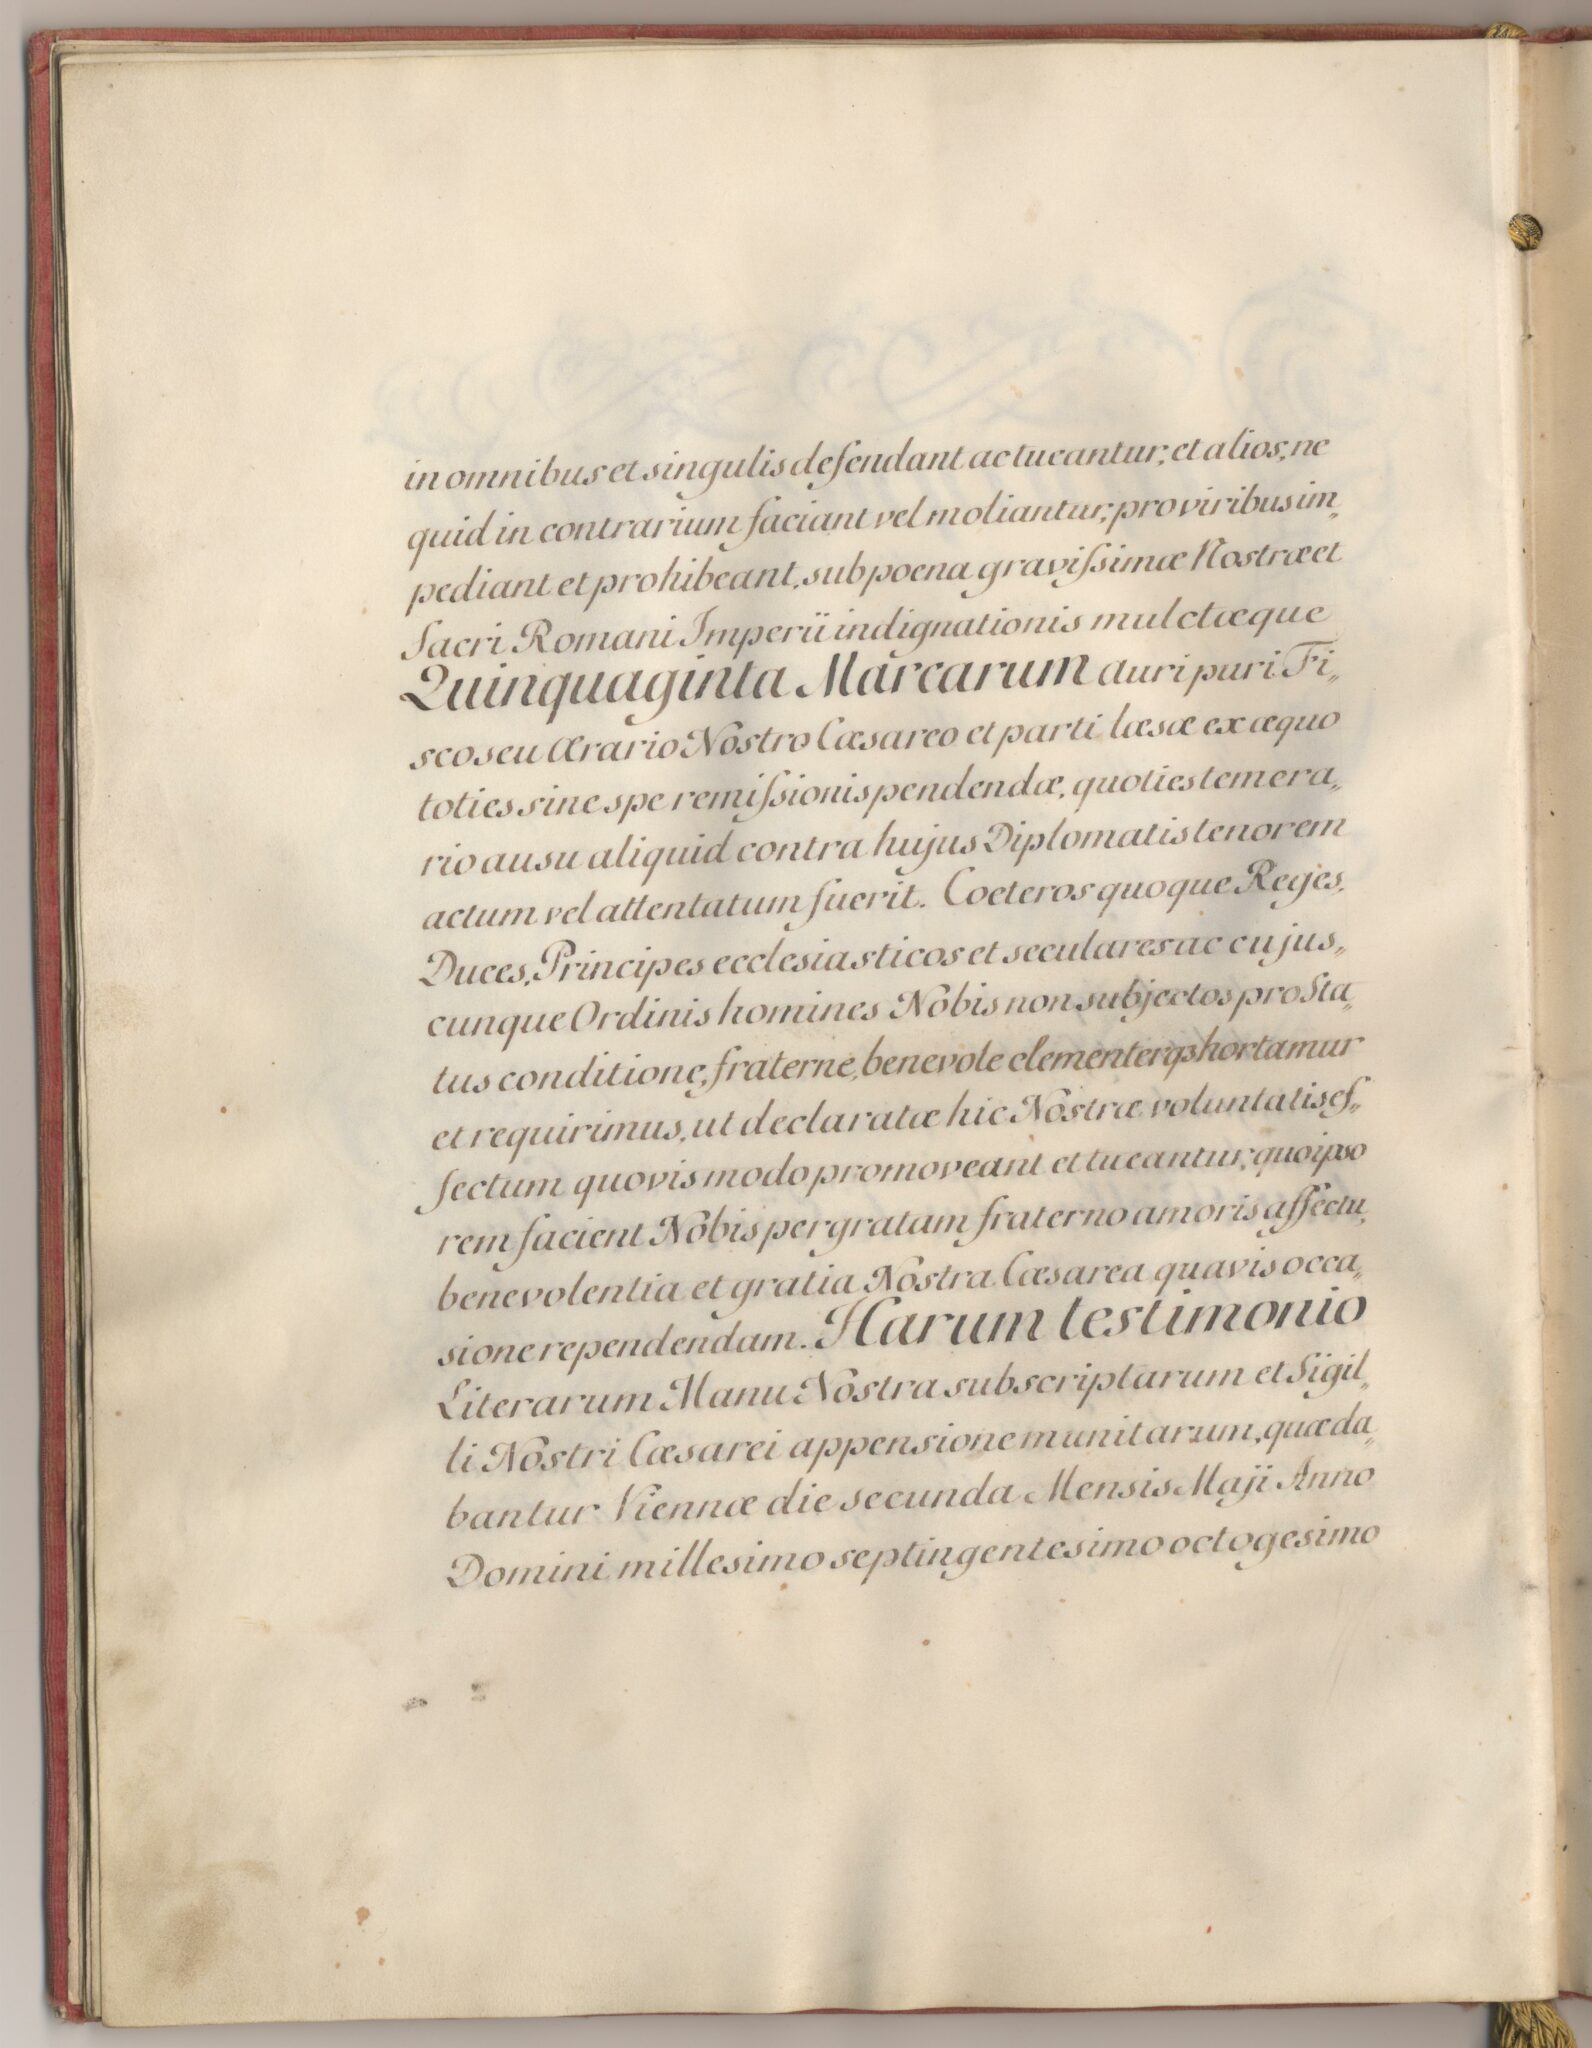 in omnibus et singulis defendant ac tueantur, et alios, ne
quid in contrarium faciant vel moliantur, pro viribus im„
pediant et prohibeant, sub poena gravissimæ Nostræ et
Sacri Romani Imperii indignationis mulctæque
Quinquaginta Marcarum auri puri Fi„
sco seu Ærario Nostro Cæsareo et parti læsæ ex æquo
toties sine spe remissionis pendendæ, quoties temera„
rio ausu aliquid contra hujus Diplomatis tenorem
actum vel attentatum fuerit. Coeteros quoque Reges,
Duces, Principes ecclesiasticos et seculares ac cujus„
cunque Ordinis homines Nobis non subjectos pro Sta„
tus conditione, fraterne, benevole clementerqȝ hortamur
et requirimus, ut declaratæ hic Nostræ voluntatis ef„
fectum quovis modo promoveant et tueantur, quo ipso
rem facient Nobis pergratam fraterno amoris affectu,
benevolentia et gratia Nostra Cæsarea quavis occa„
sione rependendam. Harum testimonio
Literarum Manu Nostra subscriptarum et Sigil„
li Nostri Cæsarei appensione munitarum, quæ da„
bantur Viennæ die secunda Mensis Maji Anno
Domini millesimo septingentesimo octogesimo